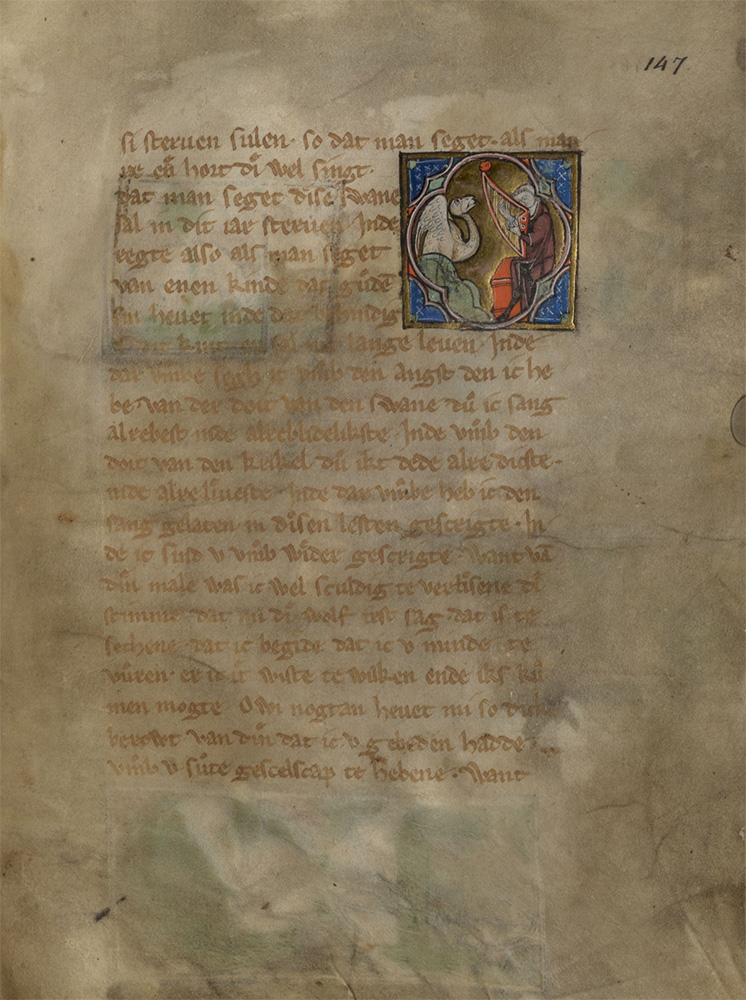 147
si steruen sulen· so dat man seget· als man
re en hort di wel singt·
dat man seget dise swane
sal in dit iar steruen Inde
regte also als man seget
van enen kinde dat guden
sin heuet inde dat
sal lange leuen· Inde
dar vmbe segh ic vmb den angst den ic he
be· van der doit van den swane du ic sang
alrebest inde alreblidelikste· Inde vmb den
doit van den krekel du ikt dede alre dickste·
inde alre liueste· Inde dar vmbe heb ic den
sang gelaten in disen lesten gescrigte· In
de ic sind v vmb wider gescrigte· Want va
din male was ic wel sculdig te verlisene di
stimme· dat mi di wolf irst sag· dat is te
sechene· dat ic begide dat ic v minde· te
vuren· er ic it wiste te wilken ende iks
men mogte· Owi nogtan heuet mi so dicke
van din dat ic v gebeden hadde·
vmb v sute gescelscap te hebene· Want